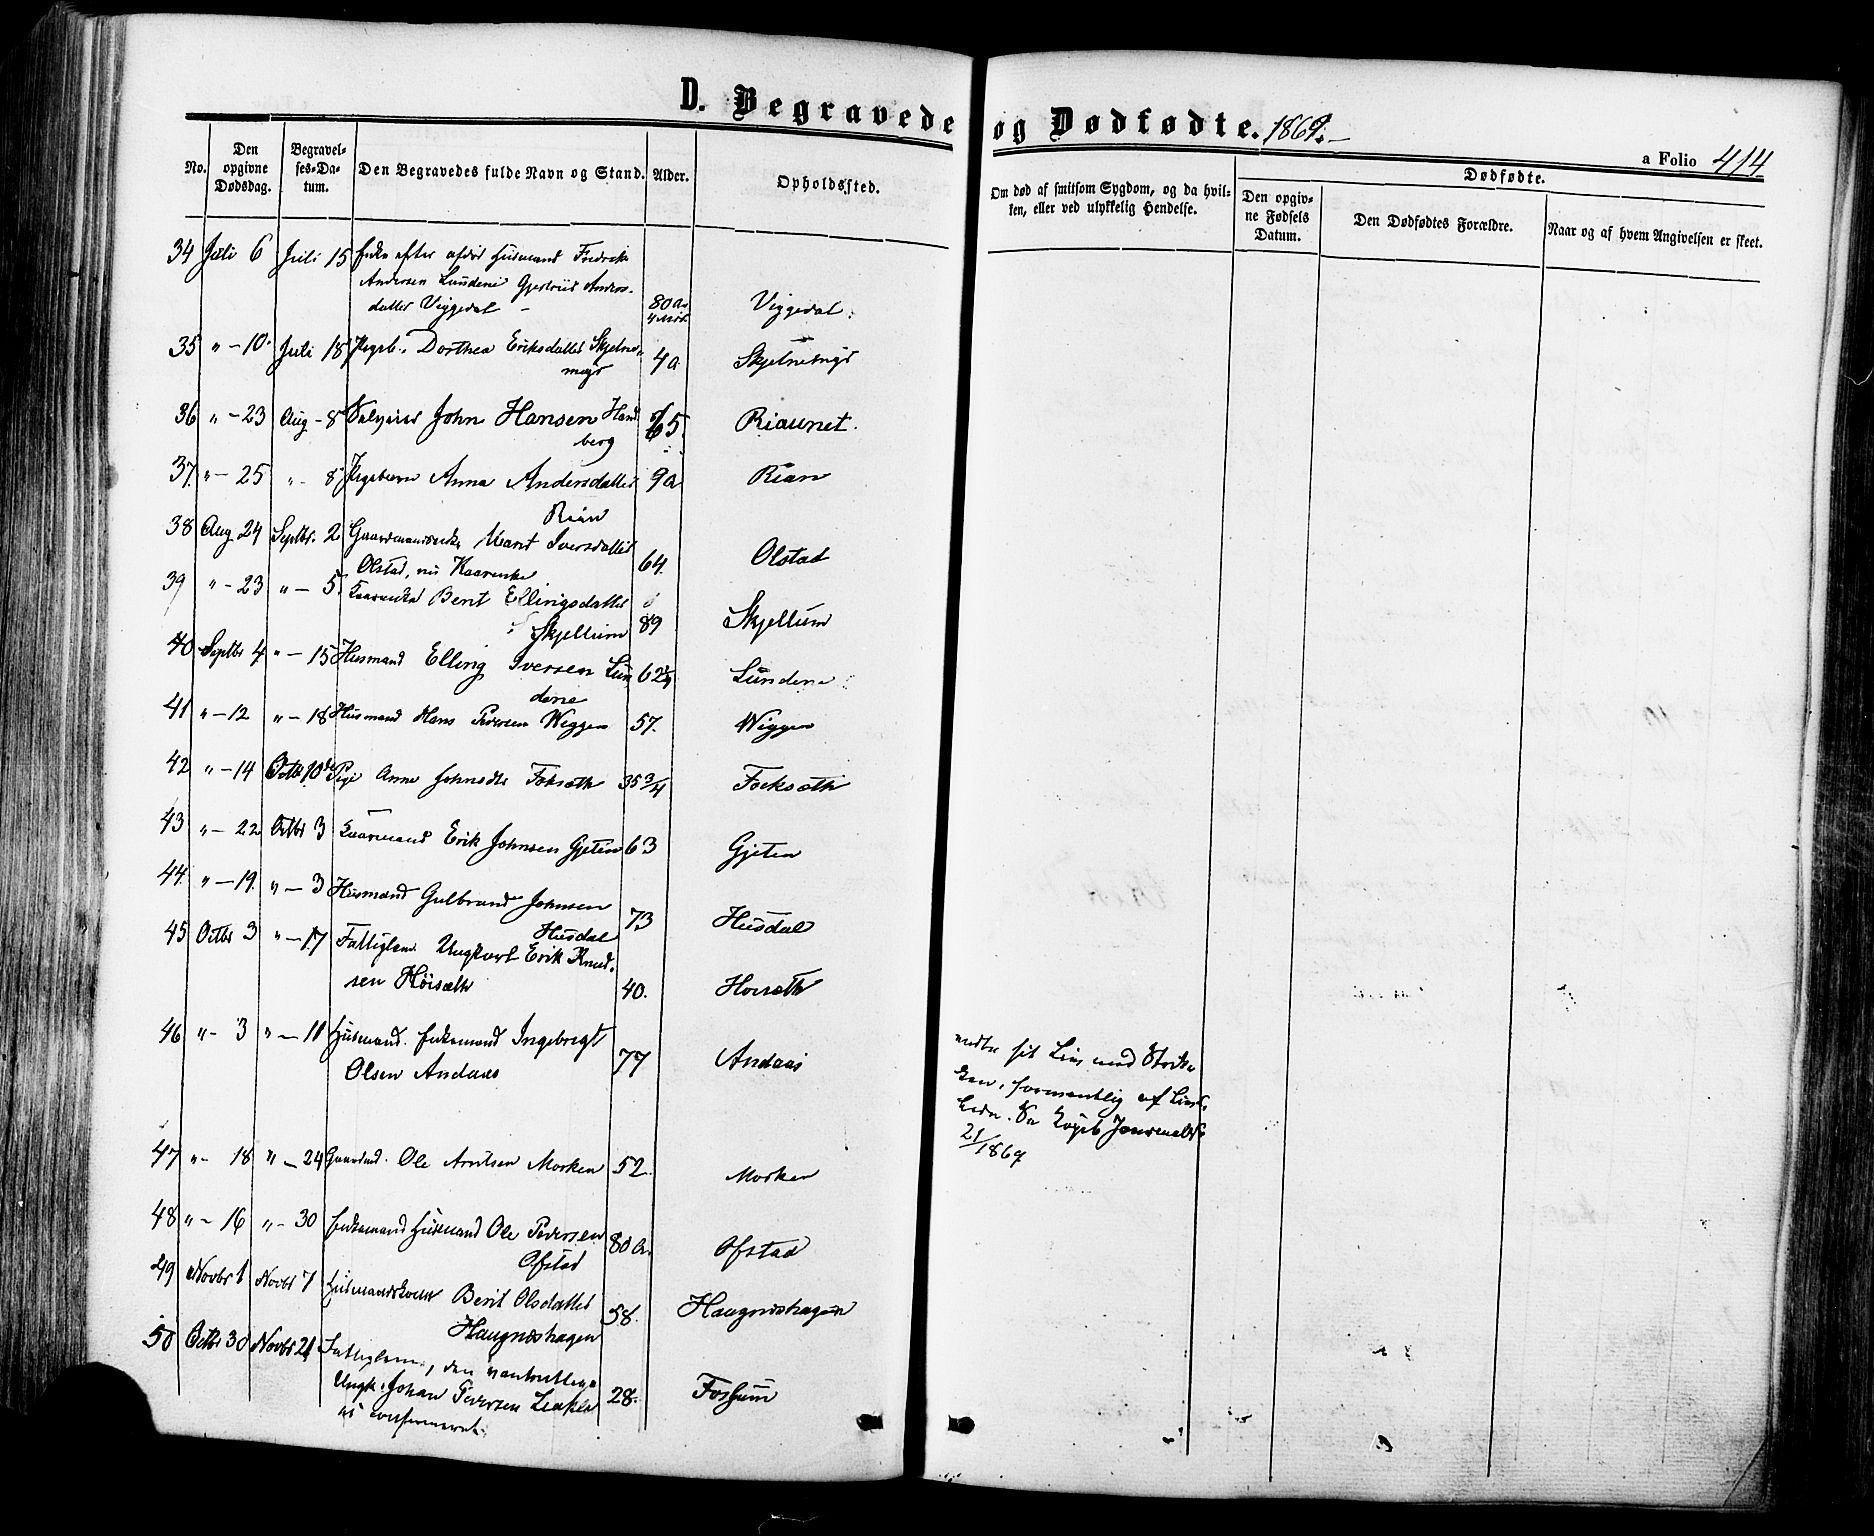 D. Begravede og Dødfødte. 1869.
a Folio 414
No.
Den opgivne Dødsdag.
Begravelses-Datum.
Den Begravedes fulde Navn og Stand.
Alder.
Opholdssted.
Om død af smitsom Sygdom, og da hvilken, eller ved ulykkelig Hendelse.
Dødfødte.
Den opgivne Fødsels Datum.
Den Dødfødtes Forældre.
Naar og af hvem Angivelsen er skeet.
34 Juli 6 Juli 15 Enke efter afdøde Husmand Fredrik
Andersen Lundene Gjertrud Anders-
datter Viggedal 80 a. 4 Mdr. Viggedal
35 " - 10 Juli 18 Pigeb. Dorthea Eriksdatter Skjelnes-
myr 4 a Skjelnesmyr
36 " - 23 Aug - 8 John Hansen Hand
berg 65 Riaunet.
37. " - 25 " - 8 Pigebarn Anna Andersdatter
Rian 9 a Rian
38 Aug 24 Septbr. 2 Marit Iversdatter
Olstad, nu Kaarenke 64. Olstad
39 " - 23 " - 5 Kaarenke Berit Ellingsdatter
Skjellum 89 Skjellum
40 Septbr 4 " - 15 Husmand Elling Iversen Lun
dene 62 Lundene
41 " - 12 " - 18 Husmand Hans Pedersen Wiggen 57. Wiggen
42 " - 14 Octbr 10de Pige Anne Johnsdtr Foksæth 35 3/4 Focksæth
43 " - 22 Octbr 3 Kaarmand Erik Johnsen Gjeten 63 Gjeten
44. " - 19. " - 3 Husmand Gulbrand Johnsen
Husdal 73 Husdal
45 Octbr 3 " - 17 Fattiglem Ungkarl Erik Knud-
sen Höisæth 40. Hoisæth
46 " - 3 " - 11 Husmand. Enkemand Ingebrigt
Olsen Andaas 77 Andaas
endte sit Liv med Strik-
ken, formentlig af Livs-
lede. Journal
21/1869
47 " - 18 " - 24 Gaardmd. Ole Arntsen Morken 52. Morken
48 " - 16 " - 30 Enkemand Husmand Ole Pedersen
Ofstad 80 a. Ofstad
49 Novbr 1 Novbr 7 Husmandskone Berit Olsdatter
Haugneshagen 58. Haugneshagen
50 Octbr 30 Novbr 21 Fattiglem, den vanvittige
Ungk. Johan Pedersen
confirmeret 28. Fossum